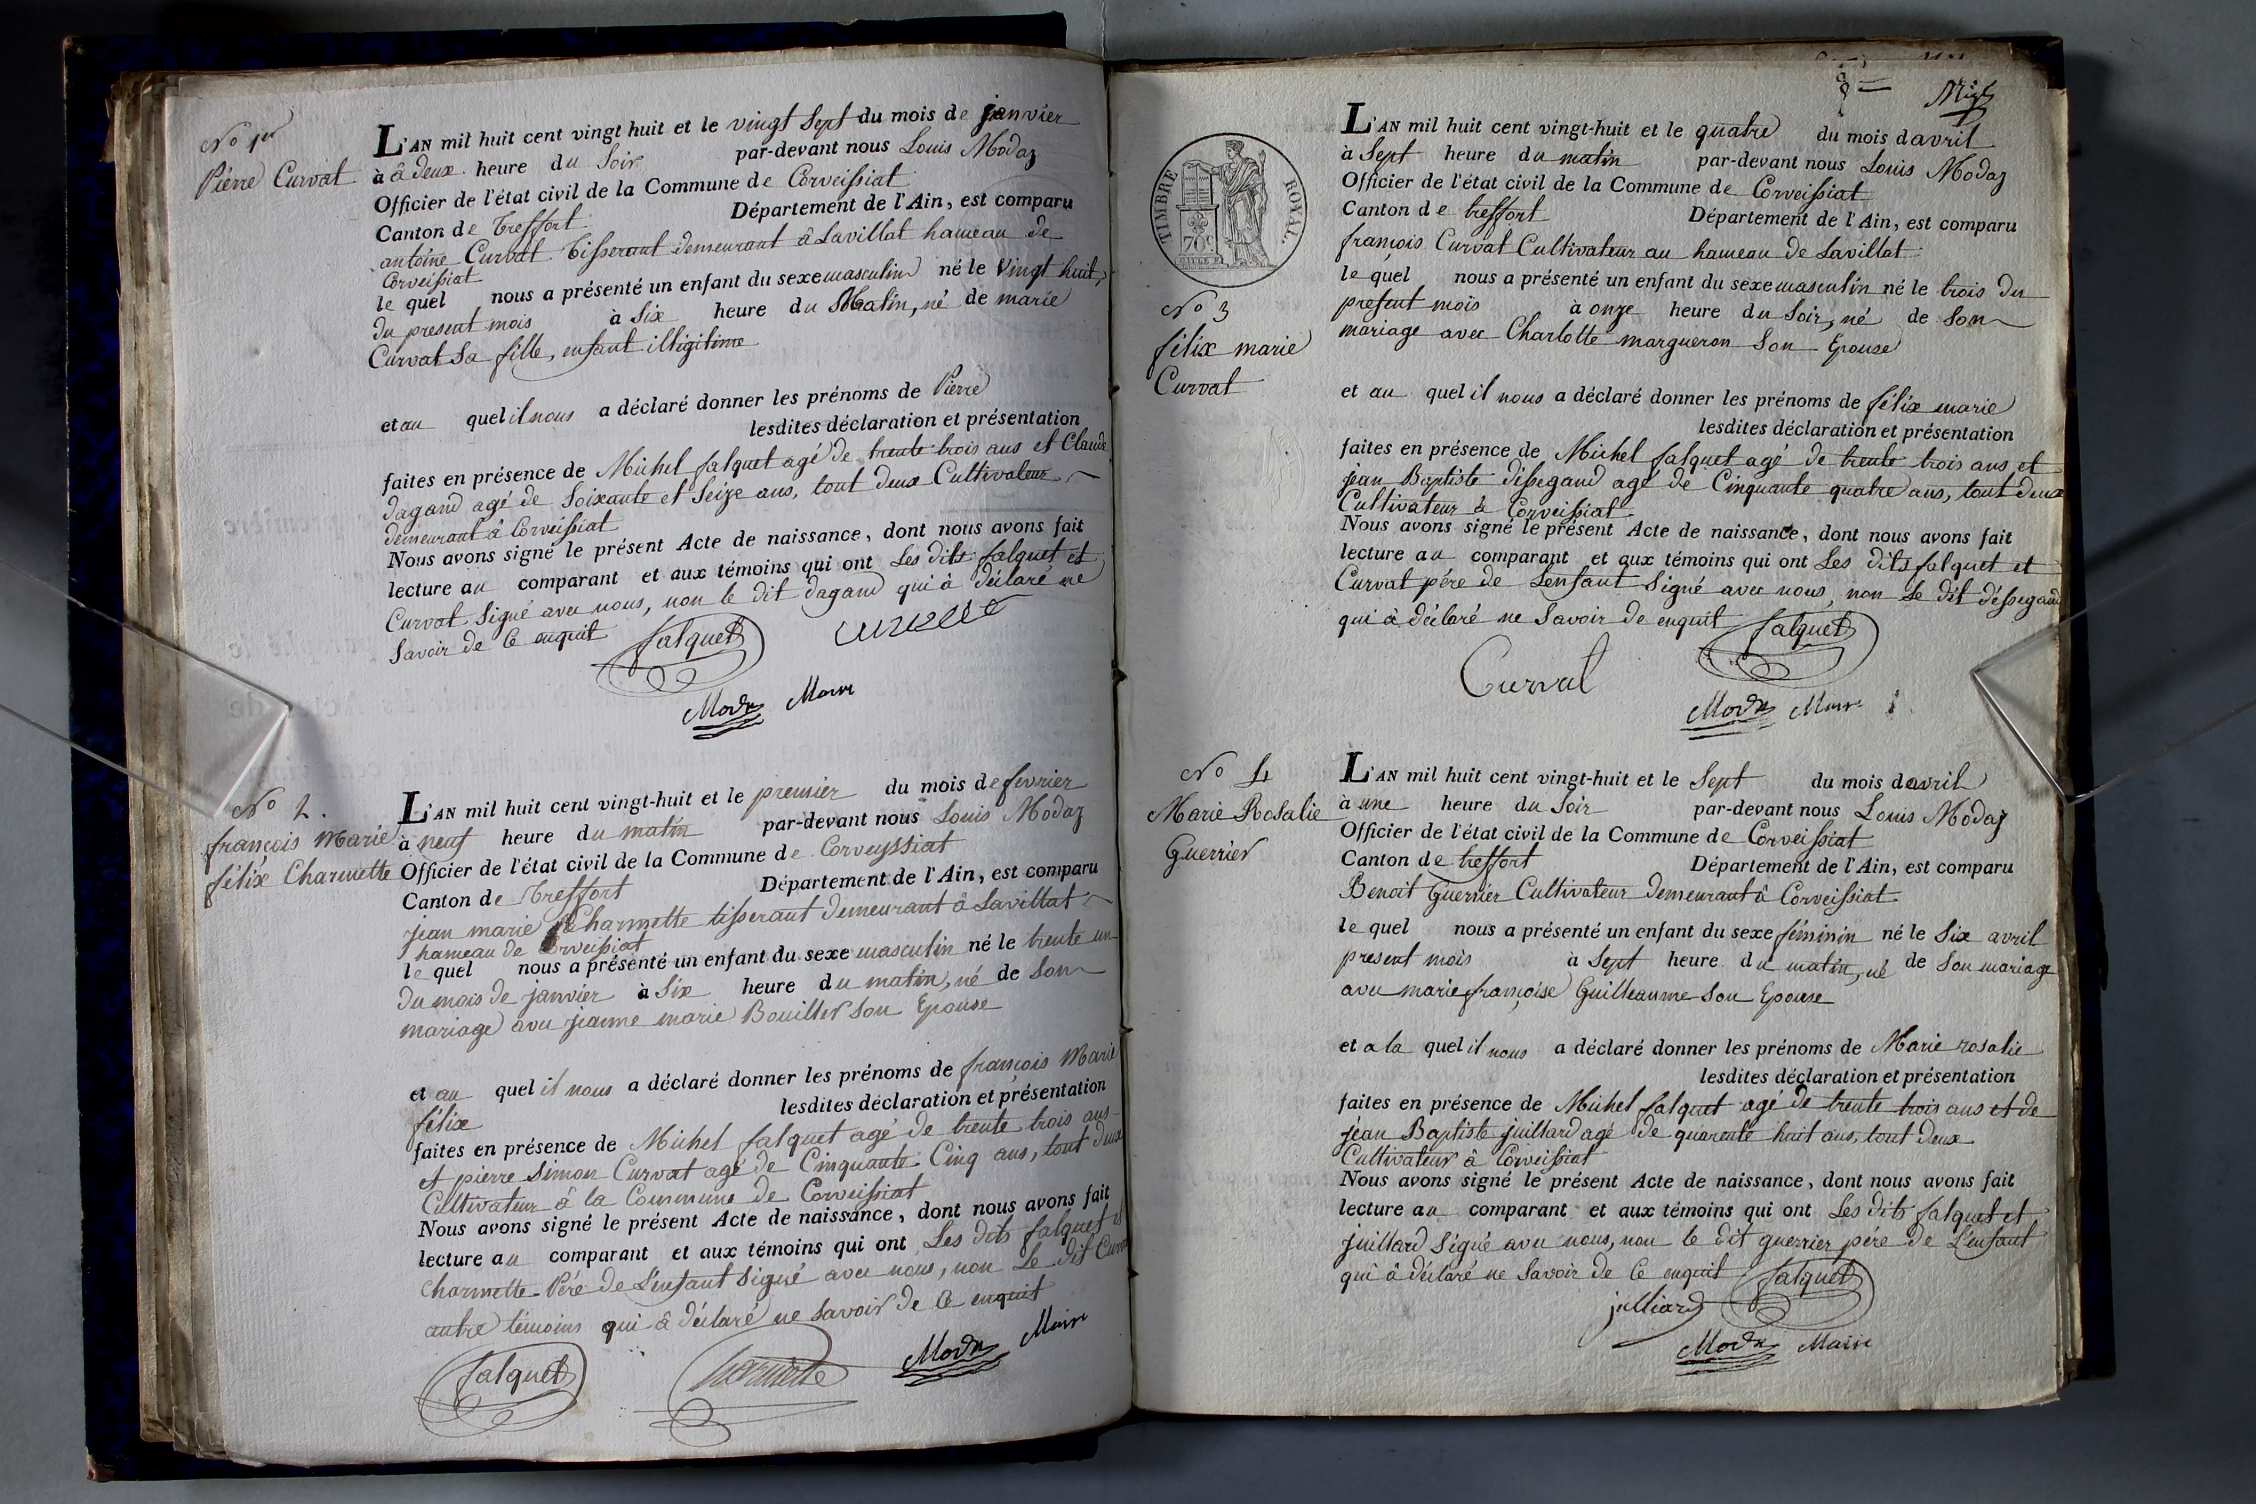 No 1er
Pierre Curvat
L'AN mil huit cent vingt huit et le vingt sept du mois de janvier
à â deux heure du Soir par-devant nous Louis Modaz
Officier de l'état civil de la Commune de Corveissiat
Canton de Treffort Département de l'Ain, est comparu
antoine Curvat Tisserant demeurant â Lavillat hameau de
Corveissiat
le quel nous a présenté un enfant du sexe masculin né le Vingt huit,
du present mois à Six heure du Matin, né de marie
Curvat Sa fille, enfant illigitime
et au quel il nous a déclaré donner les prénoms de Pierre
lesdites déclaration et présentation
faites en présence de Michel falquet agé de trente trois ans et Claude
dagand agé de Soixante et Seize ans, tout deux Cultivateur
demeurant â Corveissiat
Nous avons signé le présent Acte de naissance, dont nous avons fait
lecture au comparant et aux témoins qui ont Les dits falquet et
Curvat Signé avec nous, non le dit dagand qui â déclaré ne
Savoir de Ce enquit falquet
Modaz Maire
No 2.
françois Marie
félix Charmette
L'AN mil huit cent vingt-huit et le premier du mois de fevrier
à neuf heure du matin par-devant nous Louis Modaz
Officier de l'état civil de la Commune de Corveyssiat
Canton de Treffort Département de l'Ain, est comparu
jean marie Charmette tisserant demeurant â Lavillat
hameau de Corveissiat
le quel nous a présenté un enfant du sexe masculin né le trente un
du mois de janvier à Six heure du matin, né de Son
mariage avec jeanne marie Bouiller Son Epouse
et au quel il nous a déclaré donner les prénoms de françois Marie
félix lesdites déclaration et présentation
faites en présence de Michel falquet agé de trente trois ans
et pierre Simon Curvat agé de Cinquante Cinq ans, tout deux
Cultivateur â la Commune de Corveissiat
Nous avons signé le présent Acte de naissance, dont nous avons fait
lecture au comparant et aux témoins qui ont Les dits falquet et
Charmette Pére de L'enfant Signé avec nous, non Le dit Curvat
autre témoins qui â déclaré ne Savoir de Ce enquit
falquet Charmette Modaz Maire
TIMBRE ROYAL.
70c
No 3
félix marie
Curvat
L'AN mil huit cent vingt-huit et le quatre du mois d avril
à Sept heure du matin par-devant nous Louis Modaz
Officier de l'état civil de la Commune de Corveissiat
Canton de treffort Département de l'Ain, est comparu
françois Curvat Cultivateur au hameau de Lavillat
le quel nous a présenté un enfant du sexe masculin né le trois du
present mois à onze heure du Soir, né de Son
mariage avec Charlotte margueron Son Epouse
et au quel il nous a déclaré donner les prénoms de félix marie
lesdites déclaration et présentation
faites en présence de Michel falquet agé de trente trois ans et
jean Baptiste dissegand agé de Cinquante quatre ans, tout deux
Cultivateur à Corveissiat
Nous avons signé le présent Acte de naissance, dont nous avons fait
lecture au comparant et aux témoins qui ont Les dits falquet et
Curvat pére de Lenfant Signé avec nous, non Le dit déssegand
qui â déclaré ne Savoir de enquit falquet
Curval
Modaz Maire
No 4
Marie Rosalie
Guerrier
L'AN mil huit cent vingt-huit et le Sept du mois d avril
à une heure du Soir par-devant nous Louis Modaz
Officier de l'état civil de la Commune de Corveissiat
Canton de treffort Département de l'Ain, est comparu
Benoit Guerrier Cultivateur demeurant â Corveissiat
le quel nous a présenté un enfant du sexe féminin né le Six avril
present mois à Sept heure du matin, né de Son mariage
avec marie françoise Guilleaume Son Epouse
et a la quel il nous a déclaré donner les prénoms de Marie rosalie
lesdites déclaration et présentation
faites en présence de Michel falquet agé de trente trois ans et de
jean Baptiste juillard agé de quarente huit ans, tout deux
Cultivateur â Corveissiat
Nous avons signé le présent Acte de naissance, dont nous avons fait
lecture au comparant et aux témoins qui ont Les dits falquet et
juillard Signé avec nous, non le dit guerrier pére de L'enfant
qui â déclaré ne Savoir de Ce enquit falquet
julliard
Modaz Maire